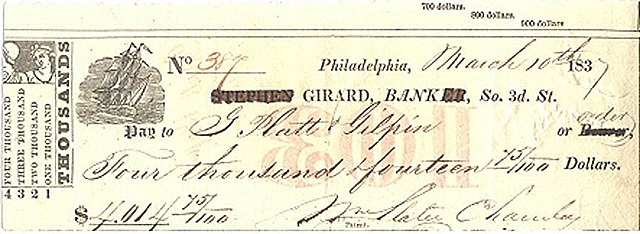 700 dollars.
800 dollars.
900 dollars
FOUR THOUSAND
THREE THOUSAND
TWO THOUSAND
ONE THOUSAND
THOUSANDS
4 3 2 1
No 389 Philadelphia, March 10th 1837
STEPHEN GIRARD, BANKER, So. 3d. St.
Pay to G Platt & Gilpin or order Bearer,
Four thousand & fourteen 75/100 Dollars.
$ 4.014 75/100